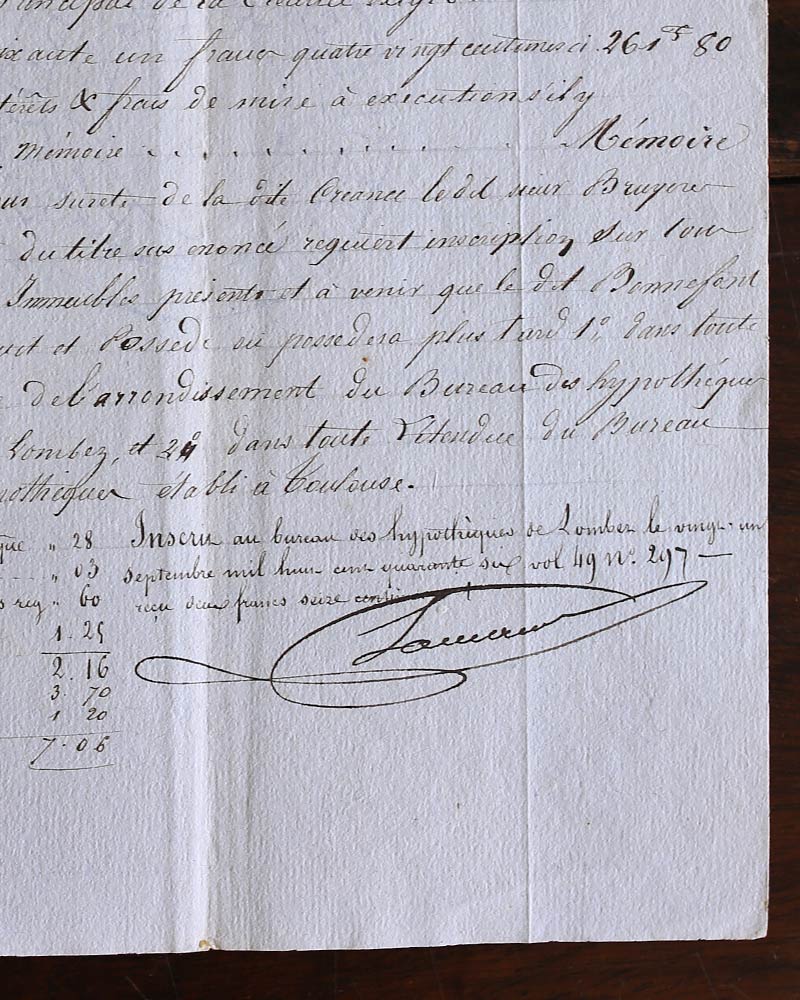 principal de la Créance
ixante un francs quatre vingt centimes ci. 261 fs 80
térêts & frais de mise à exécution s'il y
Mémoire . . . . . . . . . . . Mémoire
sureté de la dite Créance le dit sieur Bruyere
du titre sus enoncé requiert inscription sur tous
Immeubles présents et à venir que le dit Bonnefont
et Possède ou possedera plus tard 1º. dans toute
de l'arrondissement du Bureau des hypothéques
Lombez, et 2º dans toute l'étendue du Bureau
pothéques établi à Toulouse.
que " 28 Inscrit au bureau des hypothèques de Lombez le vingt-un
" 03 septembre mil huit cent quarante six vol 49 nº. 297 —
reg " 60 reçu deux francs seize centimes
1. 25
2. 16
3. 70
1 20
7. 06